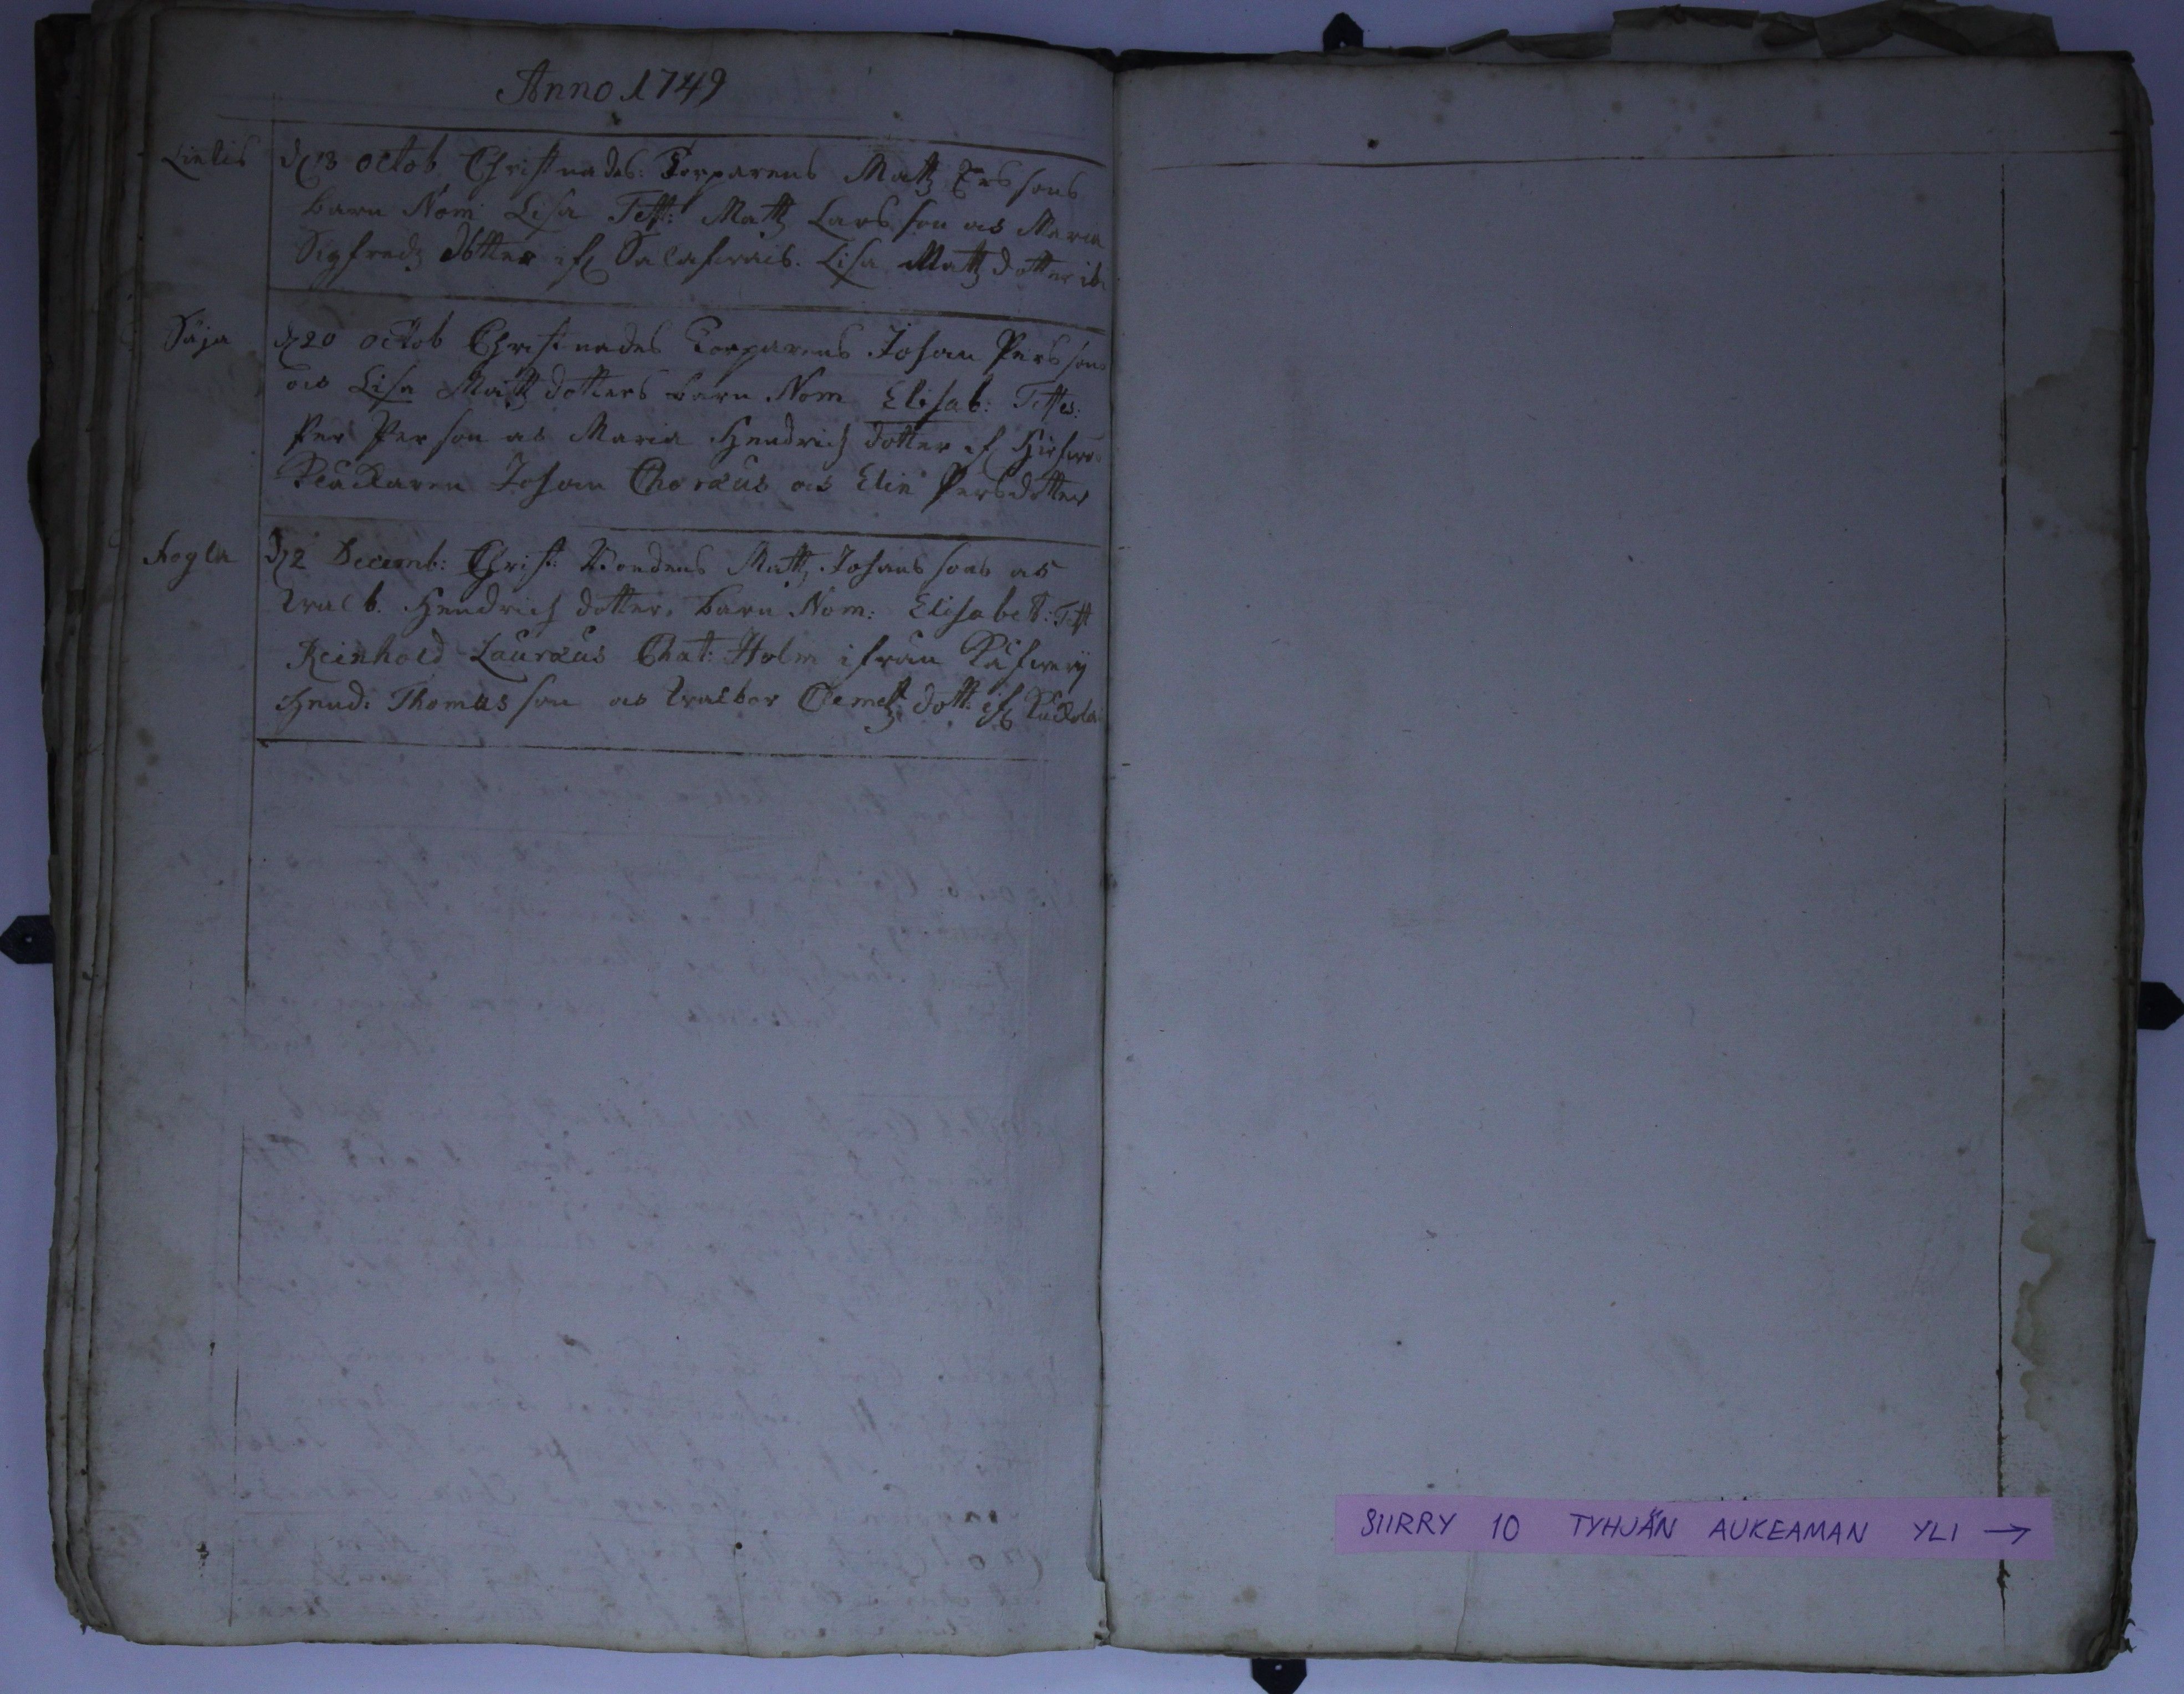 Anno 1749
d 13 octob Christnades: Torparens Matz Ers sons
barn Nom Lisa Test: Matz Lars son os Maria
Sigfredz dotter if Lisa Matz dotter ib.
Säja
d 20 octob Christnades Torparens Johan Pers sons
os Lisa Matz dotters barn Nom Elisab: Testes:
Per Per son os Maria Hendrich dotter if
Klåckaren Johan Choræus os Elin Persdotter
Kogla
d 2 Decemb: Christ: Bondens Matz Johans sons os
Walb. Hendrich dotter. barn Nom: Elisabet: Test
Reinhold Lauræus Chat: Holm ifrån
Hend: Thomas son os Walbor Clemetz dott: if
SIIRRY 10 TYHJÄN AUKEAMAN YLI →